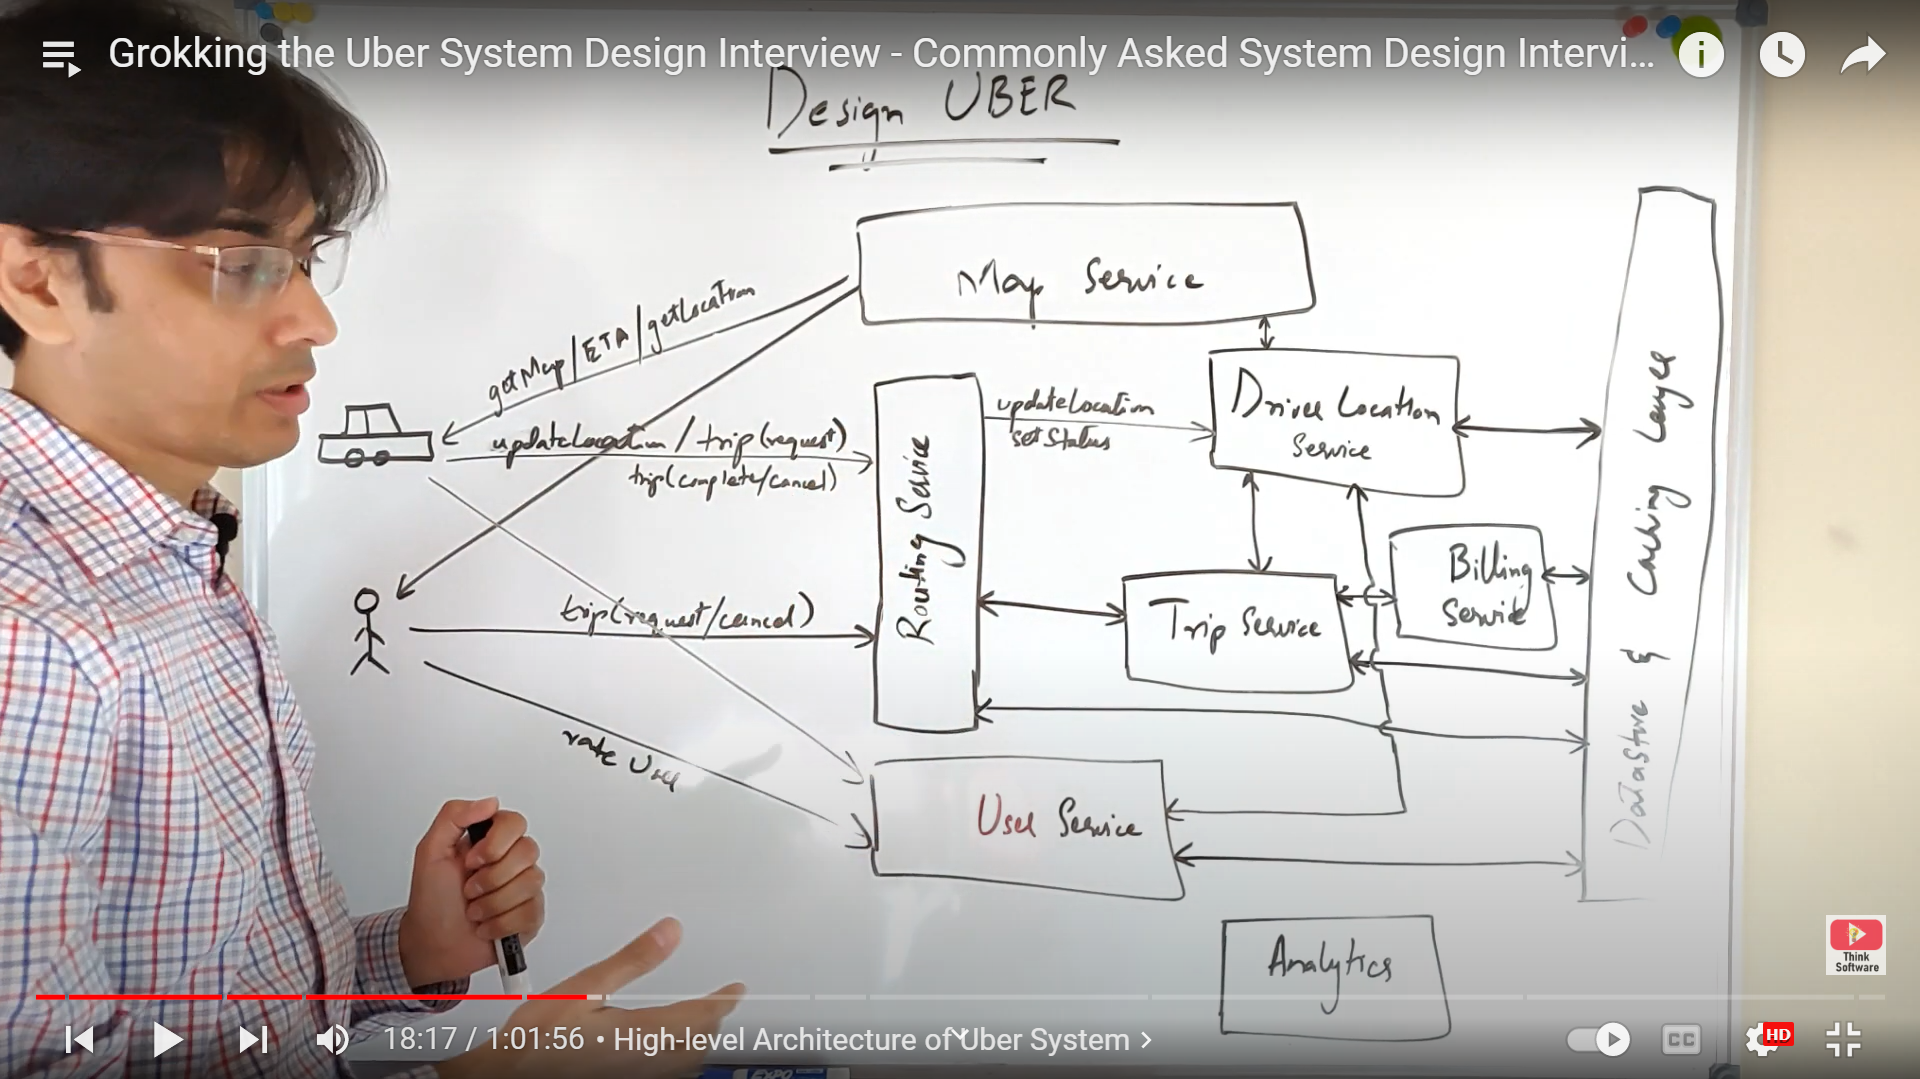 Grokking the Uber System Design Interview - Commonly Asked System Design Intervi...
Design UBER
Map Service
getMap/ETA/getLocation
updateLocation / trip(request)
trip(complete/cancel)
updateLocation
setStatus
Driver Location
Service
Routing Service
Billing
Service
trip(request/cancel)
Trip Service
Datastore & Caching Layer
rate User
User Service
Analytics
Think
Software
18:17 / 1:01:56 • High-level Architecture of Uber System >
CC
HD
EXPO